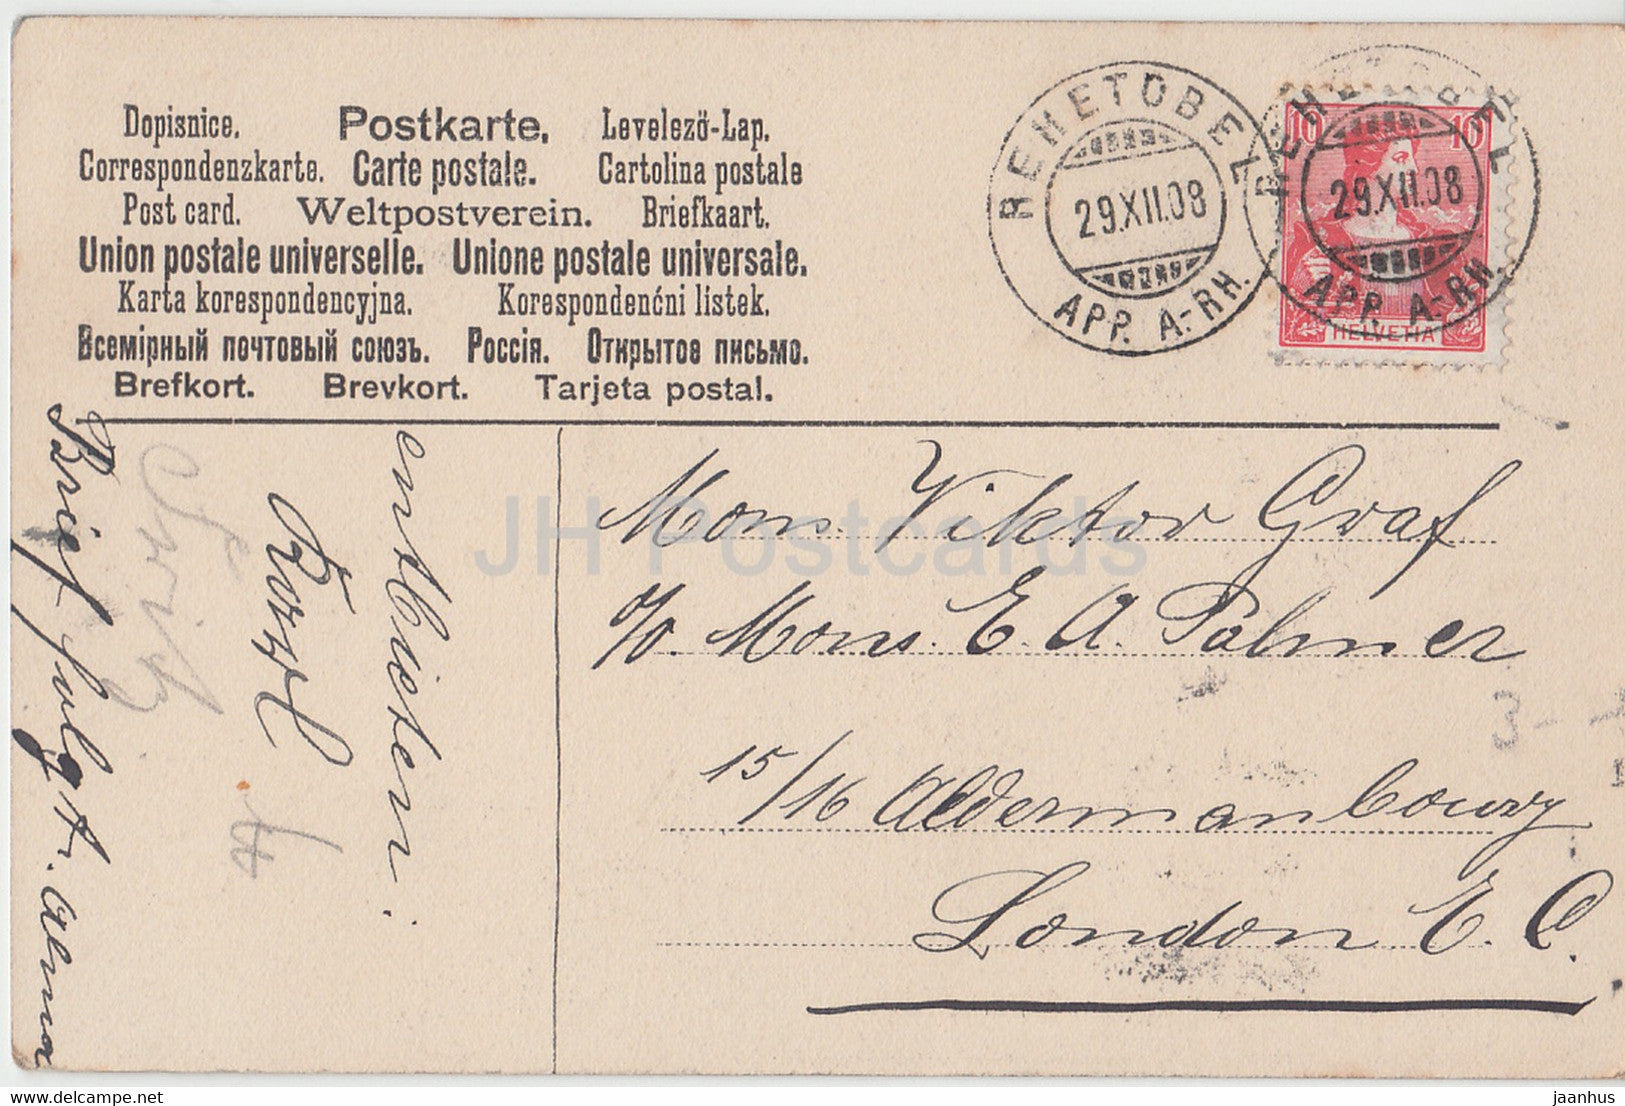 Dopisnice. Postkarte. Levelező-Lap.
Correspondenzkarte. Carte postale. Cartolina postale
Post card. Weltpostverein. Briefkaart.
Union postale universelle. Unione postale universale.
Karta korespondencyjna. Korespondenćni listek.
Всемірный почтовый союзъ. Россія. Открытое письмо.
Brefkort. Brevkort. Tarjeta postal.
REHETOBEL
29.XII.08
APP. A.-RH.
REHETOBEL
29.XII.08
APP. A.-RH.
10 10
HELVETIA
Mons Viktor Graf
%. Mons. E. A. Palmer
15/16 Aldermanboury
London E. C.
entbieten:
Brief folgt. Alma
3-
JH Postcards
DELCAMPE.NET
jaanhus